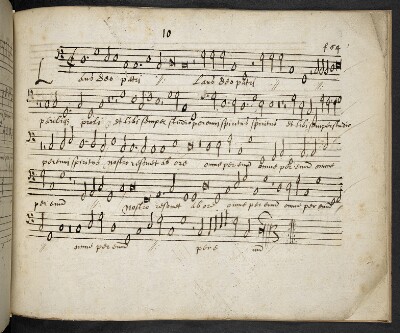 10
f 64
Laus Deo patri // Laus deo patri //
parilisq proli, et tibi semper studio perenni spiritus spiritus et tibi semper studio
perenni spiritus, nostro resonet ab ore omne per evud omne per evud omne
per evud nostro resonet ab ore omne per evud omne per evud
// omne per evud // per e ud